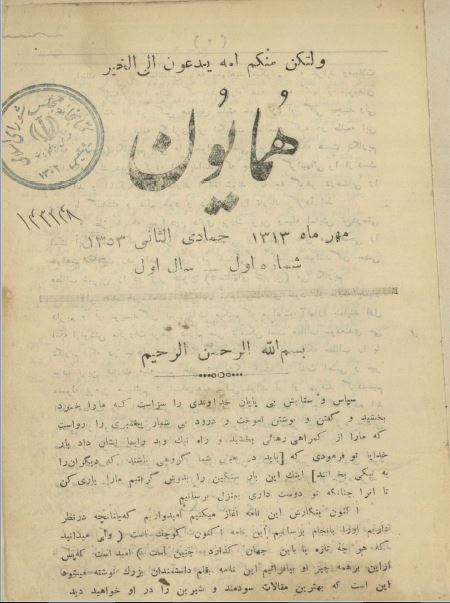 ولتکن منکم امة یدعون الی الخیر
همایون
۱۴۳۴۸
مهر ماه ۱۳۱۳ جمادی الثانی ۱۳۵۳
شماره اول — سال اول
بسم‌الله الرحمن الرحیم
سپاس و ستایش بی پایان خداوندی را سزاست که مارا خرد
بخشید و گفتن و نوشتن اموخت و درود بی شمار پیغمبری را رواست
که مارا از گمراهی رهائی بخشید و راه نیک وبد وابما نشان داد بار
خدایا تو فرمودی که [باید در میان شما گروهی باشند که دیگران را
به نیکی بخوانند] اینک این بار سنگین را بدوش گرفتیم مارا یاری کن
تا انرا چنانکه تو دوست داری بمنزل برسانیم
اکنون بنگارش این نامه اغاز میکنیم امیدواریم که چنانچه درنظر
داریم اورا بانجام برسانیم این نامه اکنون کوچک است (ولی میدانید
که هر چه تازه پا باین جهان گذارد چنین است) امید است که پس
ازاین برهمه چیز او بیافزائیم این نامه بقلم دانشمندان بزرک نوشته میشود
این است که بهترین مقالات سودمند و شیرین را در او خواهید دید